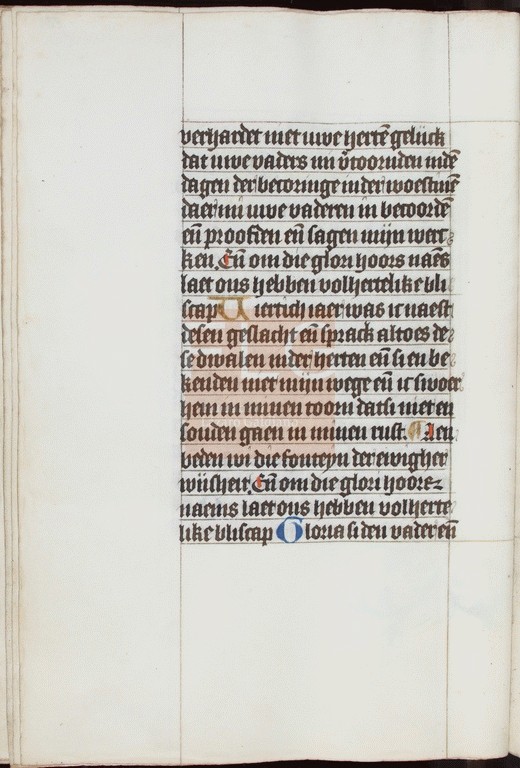 verhardet niet uwe hertē gelijck
dat uwe vaders mi v̄toornden indē
dagen der becoringe inder woestinē
daer mi uwe vaderen in becoordē
eñ proofden eñ sagen mijn werc
ken. Eñ om die glori hoors naēs
laet ons hebben volhertelike bli
scap Viertich iaer was ic naest
desen geslacht eñ sprack altoes de
se dwalen inder herten eñ si en be
kenden niet mijn wege eñ ic swoer
hem in minen toorn datsi niet en
souden gaen in minen rust. Aen
beden wi die fonteyn der ewigher
wijsheit. Eñ om die glori hoors
naems laet ons hebben volherte
like bliscap Gloria si den vader eñ